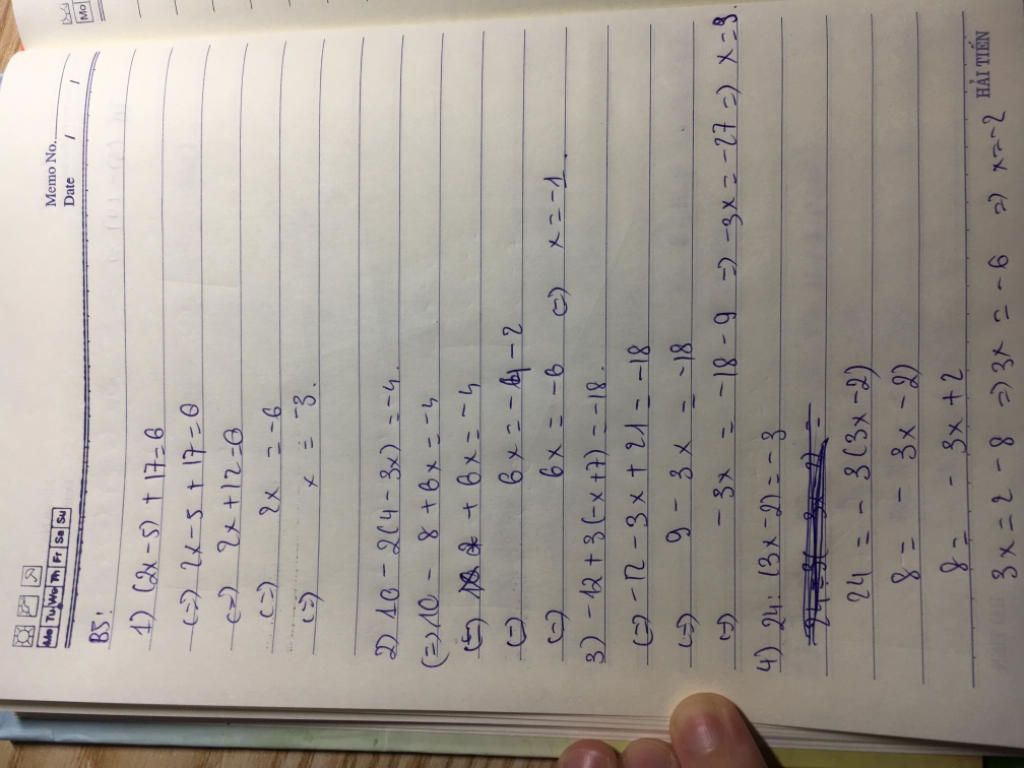 Mo
Mo Tu We Th Fr Sa Su
Memo No.
Date / /
B5:
1) (2x-5) + 17 = 6
(=) 2x - 5 + 17 = 6
(=) 2x + 12 = 6
(=) 2x = -6
(=) x = -3.
2) 10 - 2(4 - 3x) = -4.
(=) 10 - 8 + 6x = -4
(=) 2 + 6x = -4
(=) 6x = -4 - 2
(=) 6x = -6 (=) x = -1.
3) -12 + 3(-x+7) = -18.
(=) -12 - 3x + 21 = -18
(=) 9 - 3x = -18
(=) -3x = -18 - 9 => -3x = -27 => x = 9.
4) 24: (3x - 2) = -3
24 = -3(3x-2)
8 = -3x - 2)
8 = -3x + 2
3x = 2 - 8 => 3x = -6 => x = -2
HẢI TIẾN